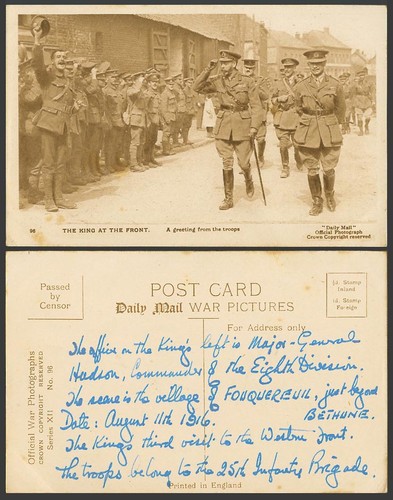 96
THE KING AT THE FRONT.
A greeting from the troops
"Daily Mail"
Official Photograph
Crown Copyright reserved
Passed
by
Censor
POST CARD
Daily Mail WAR PICTURES
½d. Stamp
Inland
1d. Stamp
Foreign
For Address only
Official War Photographs
CROWN COPYRIGHT RESERVED
Series XII No. 96
The officer on the King's left is Major-General
Hudson, Commander of the Eighth Division.
The scene is the village of FOUQUEREUIL, just beyond
BETHUNE.
Date: August 11th 1916.
The King's third visit to the Western Front.
The troops belong to the 25th Infantry Brigade.
Printed in England